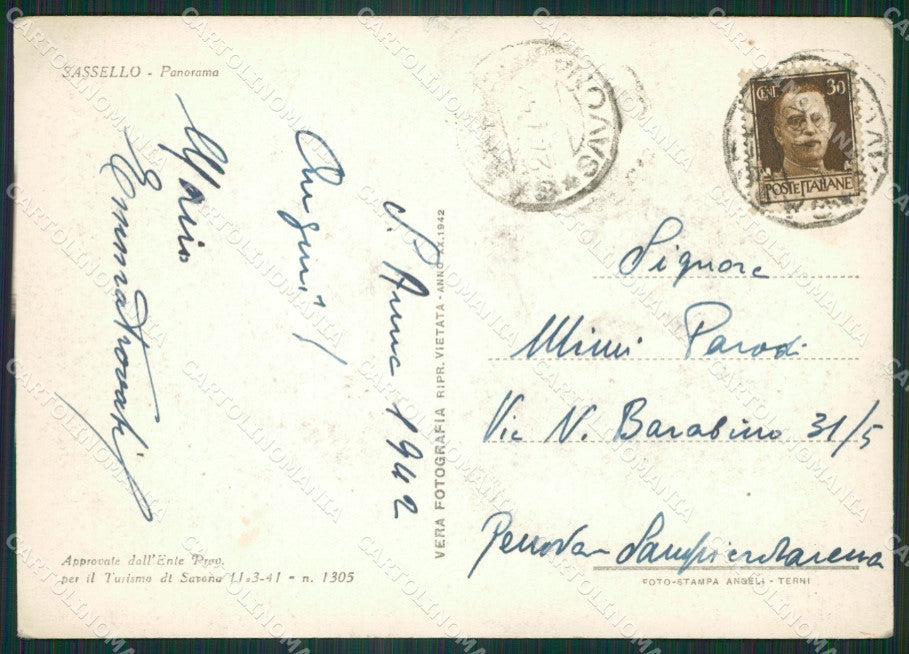 SASSELLO - Panorama
CENT. 30
POSTE ITALIANE
SAVONA
S. Anna 1942
Auguri!
Mario
Emma
Signore
Mimi Parodi
Via N. Barabino 31/5
Genova - Sampierdarena
VERA FOTOGRAFIA RIPR. VIETATA - ANNO XX.1942
Approvate dall'Ente Prov.
per il Turismo di Savona 11-3-41 - n. 1305
FOTO-STAMPA ANGELI - TERNI
CARTOLINOMANIA